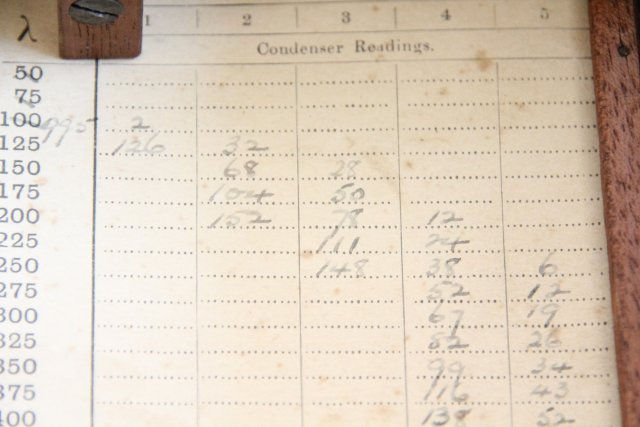 λ 1 2 3 4 5
Condenser Readings.
50
75
100 995 2
125 126 32
150 68 28
175 104 50
200 152 78 12
225 111 24
250 148 38 6
275 52 12
300 67 19
325 82 26
350 99 34
375 116 43
400 138 52